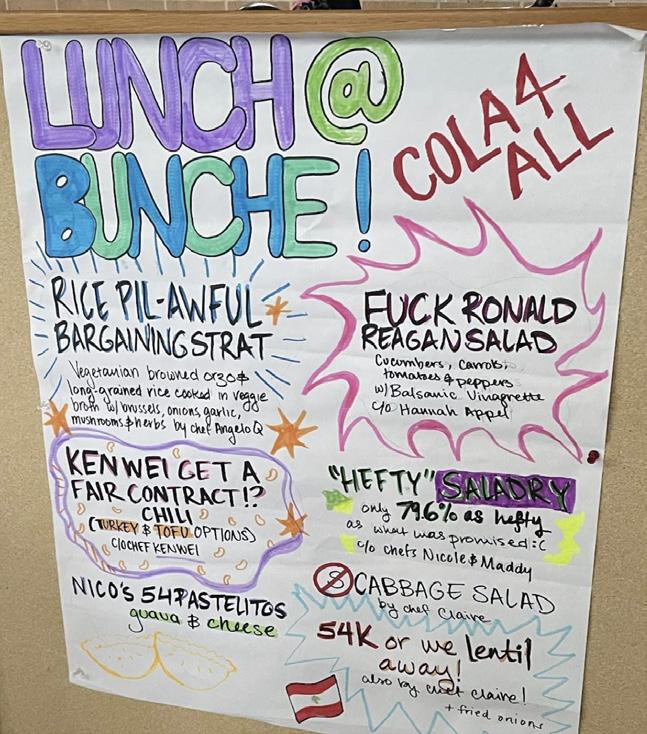 LUNCH @
BUNCHE!
COLA 4
ALL
RICE PIL-AWFUL
BARGAINING STRAT
Vegetarian browned orzo &
long-grained rice cooked in veggie
broth w/ brussels, onions, garlic,
mushrooms & herbs by chef Angelo Q
FUCK RONALD
REAGAN SALAD
Cucumbers, carrots,
tomatoes & peppers
w/ Balsamic Vinagrette
c/o Hannah Appel
KEN WEI GET A
FAIR CONTRACT!?
CHILI
(TURKEY & TOFU OPTIONS)
C/O CHEF KENWEI
"HEFTY" SALADRY
only 79.6% as hefty
as what was promised :C
c/o chefs Nicole & Maddy
NICO'S 54 PASTELITOS
guava & cheese
CABBAGE SALAD
by chef Claire
54K or we lentil
away!
also by chef claire!
+ fried onions